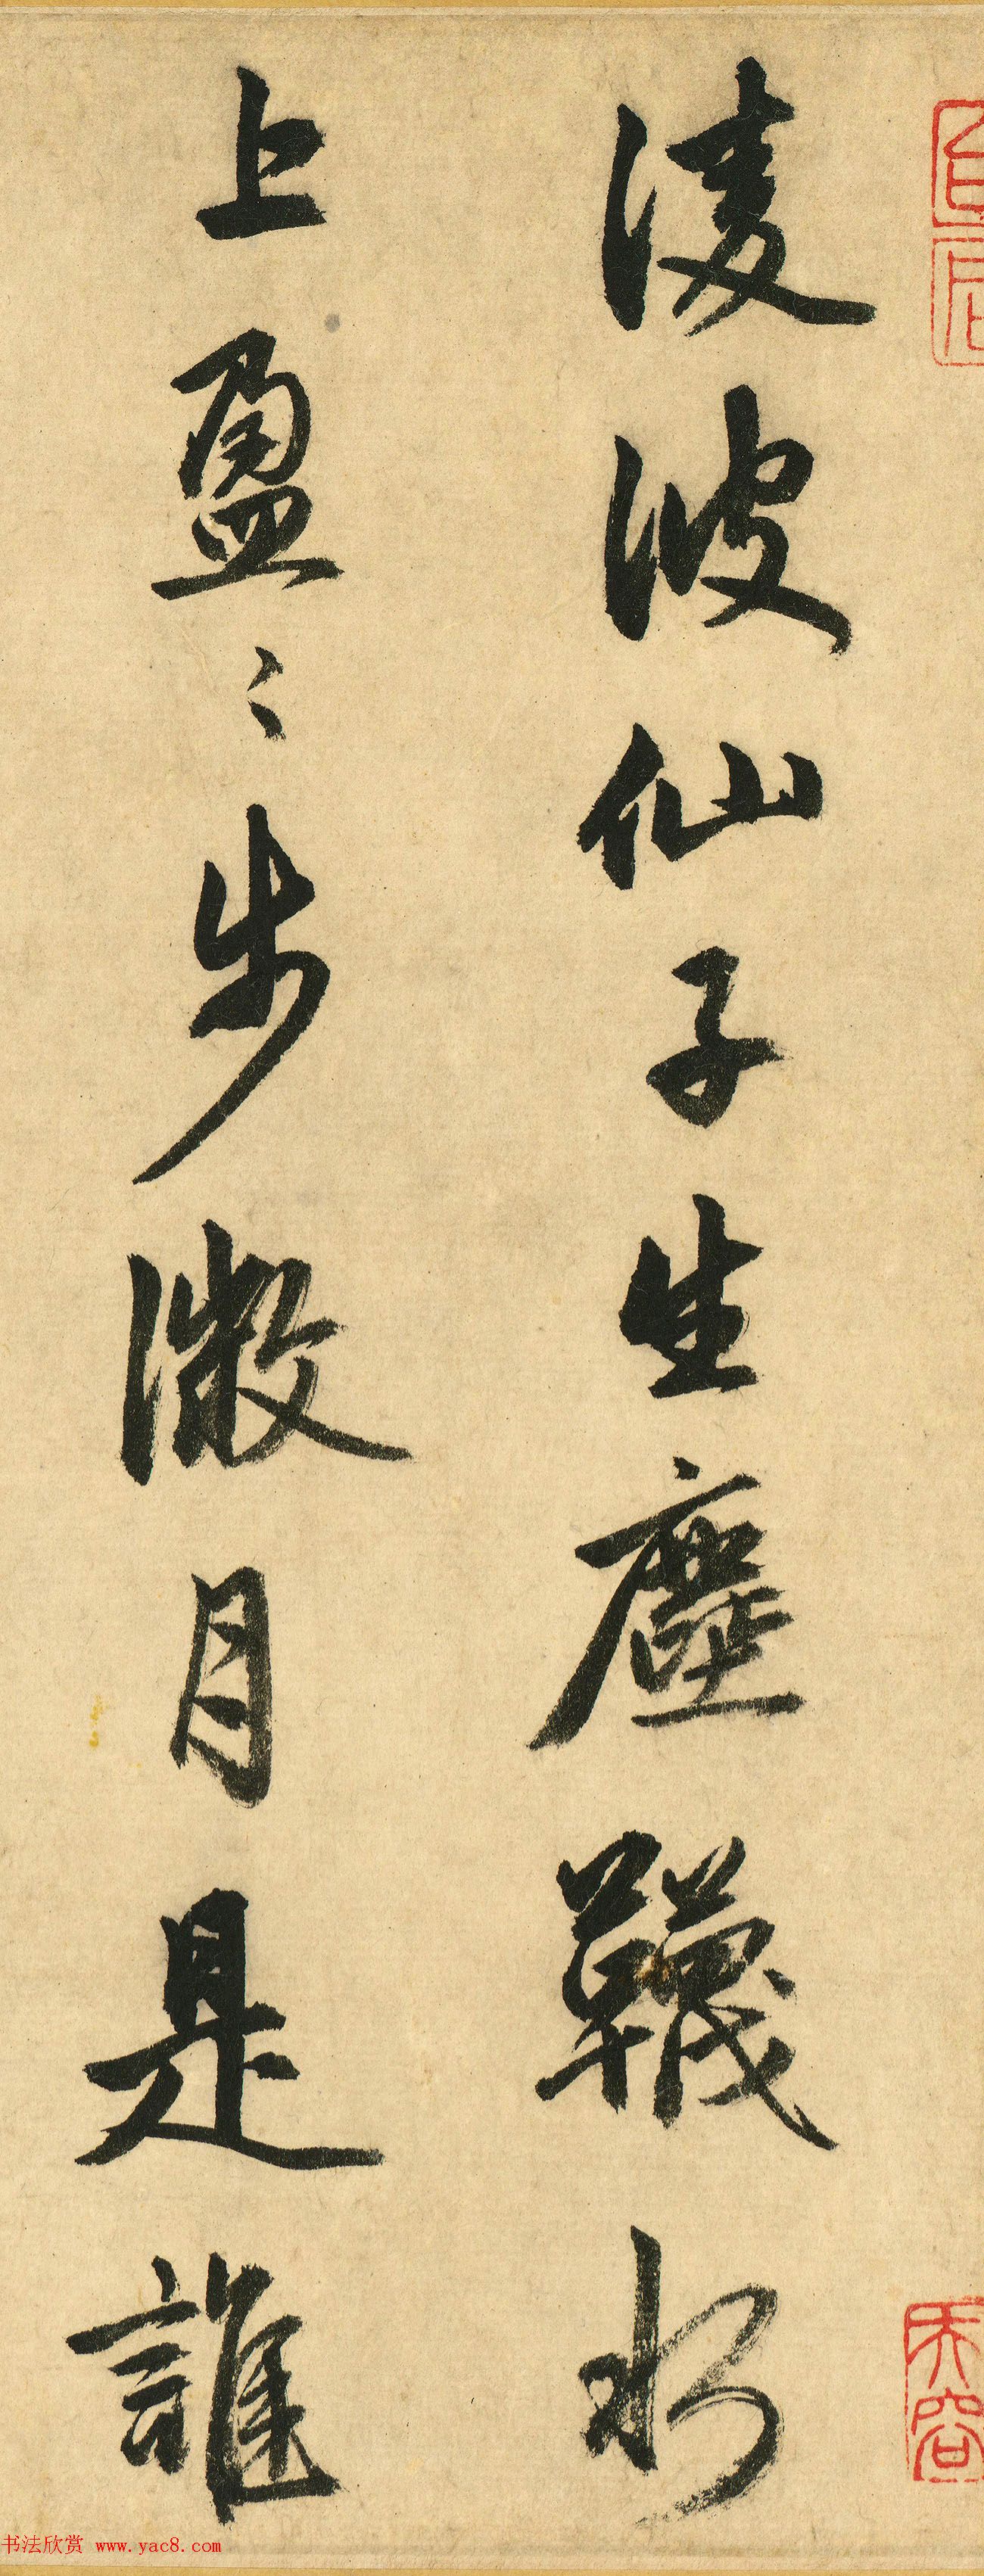 淩波仙子生塵韈水
上盈〻步微月是誰
书法欣赏 www.yac8.com